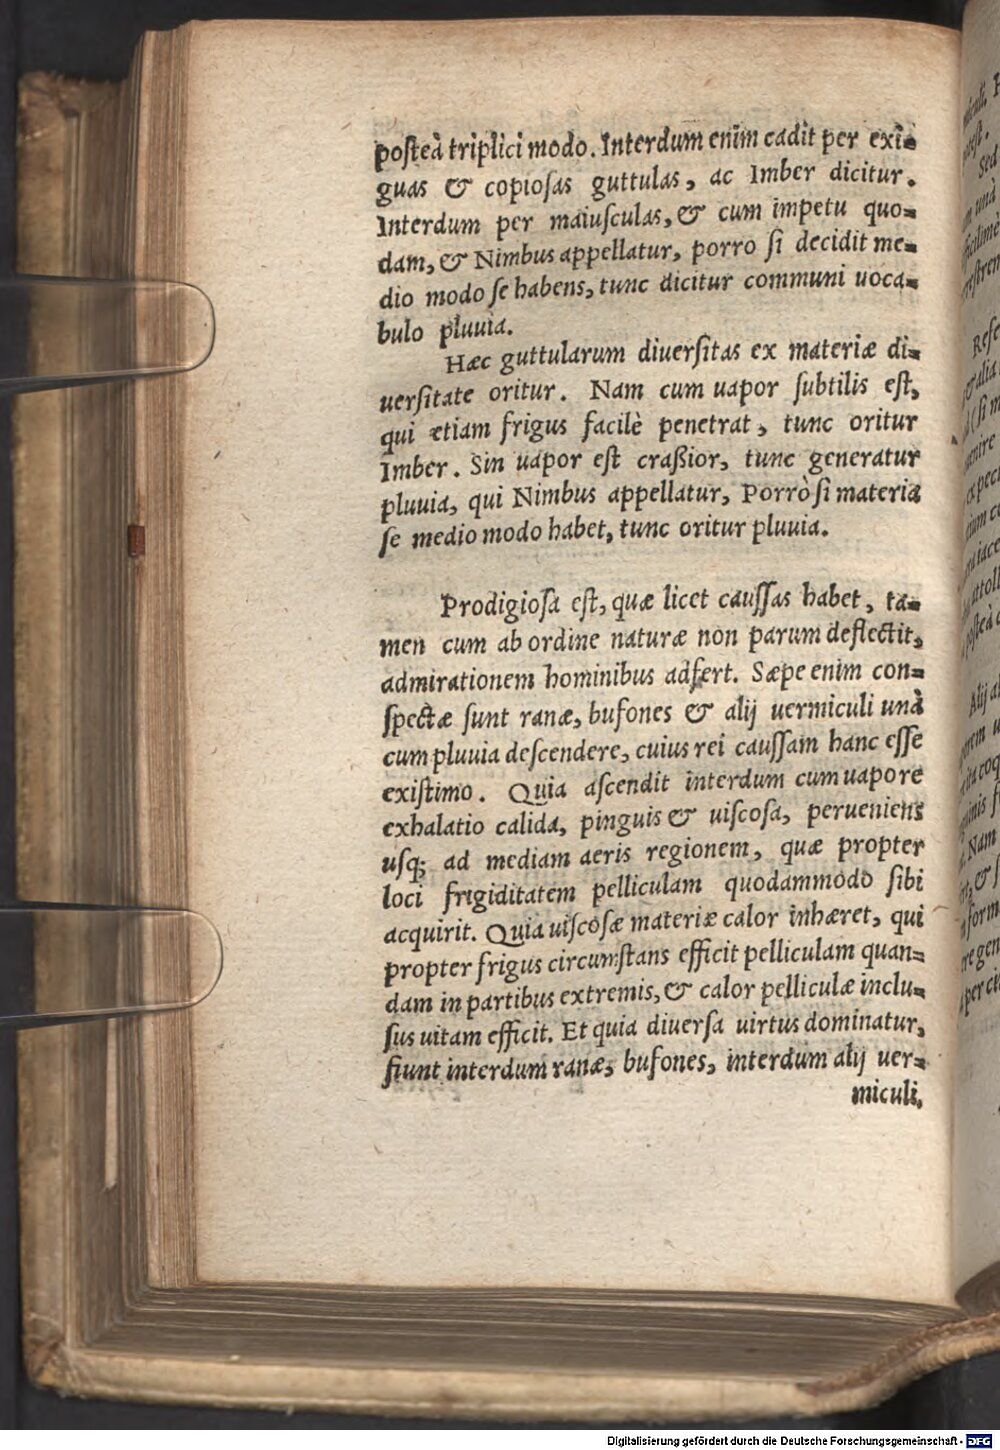 posteà triplici modo. Interdum enim cadit per exi=
guas & copiosas guttulas, ac Imber dicitur.
Interdum per maiusculas, & cum impetu quo=
dam, & Nimbus appellatur, porro si decidit me=
dio modo se habens, tunc dicitur communi uoca=
bulo pluuia.
Hæc guttularum diuersitas ex materiæ di=
uersitate oritur. Nam cum uapor subtilis est,
qui etiam frigus facilè penetrat, tunc oritur
Imber. Sin uapor est craßior, tunc generatur
pluuia, qui Nimbus appellatur, Porrò si materia
se medio modo habet, tunc oritur pluuia.
Prodigiosa est, quæ licet caussas habet, ta=
men cum ab ordine naturæ non parum deflectit,
admirationem hominibus adfert. Sæpe enim con=
spectæ sunt ranæ, bufones & alij uermiculi unà
cum pluuia descendere, cuius rei caussam hanc esse
existimo. Quia ascendit interdum cum uapore
exhalatio calida, pinguis & uiscosa, perueniens
usq; ad mediam aeris regionem, quæ propter
loci frigiditatem pelliculam quodammodo sibi
acquirit. Quia uiscosæ materiæ calor inhæret, qui
propter frigus circumstans efficit pelliculam quan=
dam in partibus extremis, & calor pelliculæ inclu=
sus uitam efficit. Et quia diuersa uirtus dominatur,
fiunt interdum ranæ, bufones, interdum alij uer=
miculi,
Digitalisierung gefördert durch die Deutsche Forschungsgemeinschaft - DFG